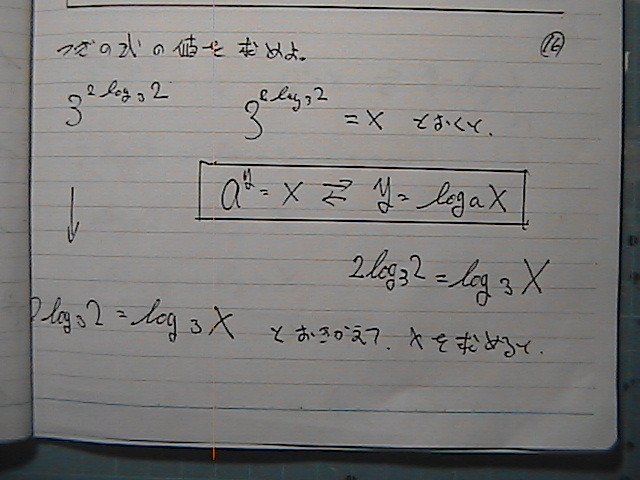 つぎの式の値を求めよ。 ⑯
3^{2log₃2} 3^{2log₃2} = x とおくと、
a^y = x ⇄ y = logaX
↓
2log₃2 = log₃X
2log₃2 = log₃X とおきかえて、xを求めると、